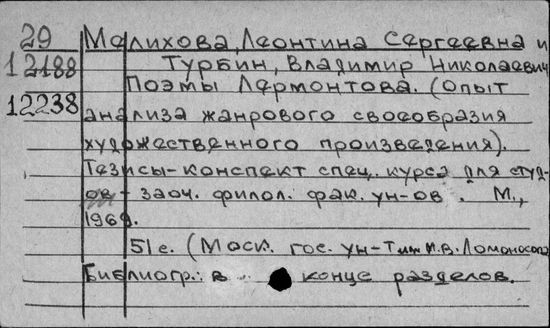 29 Мелихова, Леонтина Сергеевна и
12188 Турбин, Владимир Николаевич
Поэмы Лермонтова. (Опыт
12238 анализа жанрового своеобразия
художественного произведения).
Тезисы-конспект спец. курса для студ-
ов-заоч. филол. фак. ун-ов. М.,
1969.
51 с. (Моск. гос. ун-т им М.В. Ломоносова)
Библиогр.: в конце разделов.